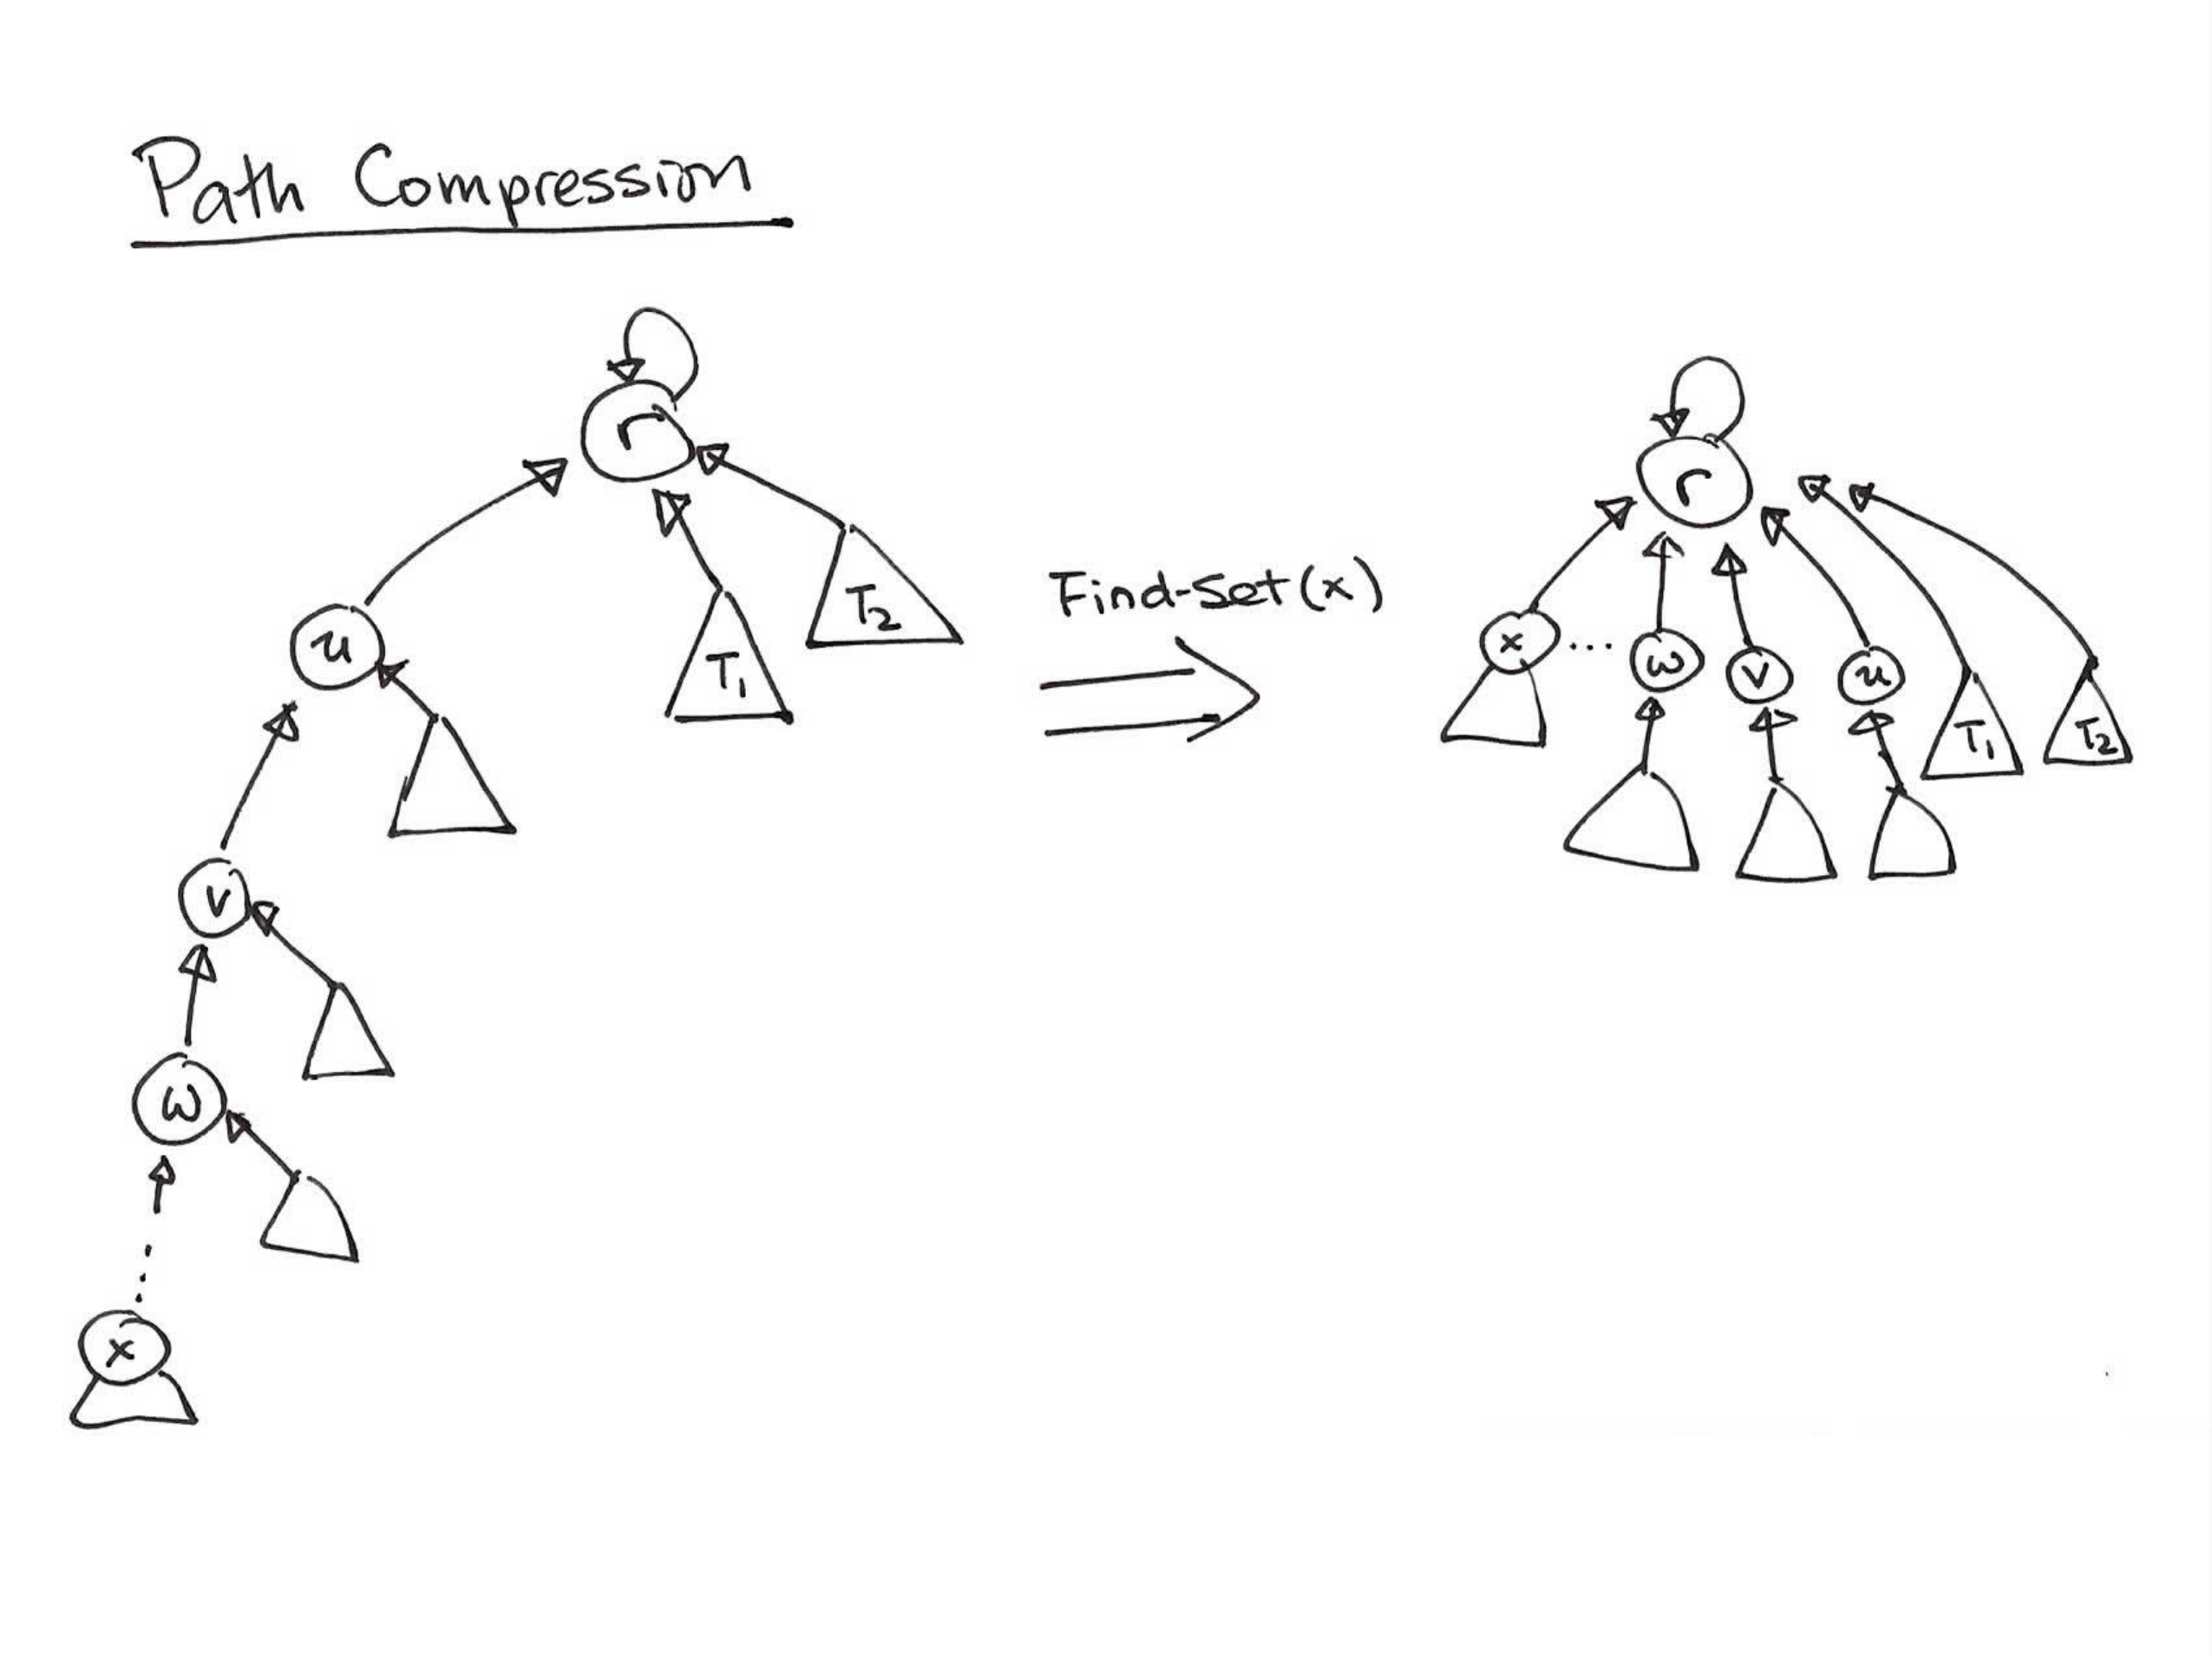 Path Compression
r
u
T2
T1
v
w
x
Find-Set(x)
r
x ... w v u
T1 T2